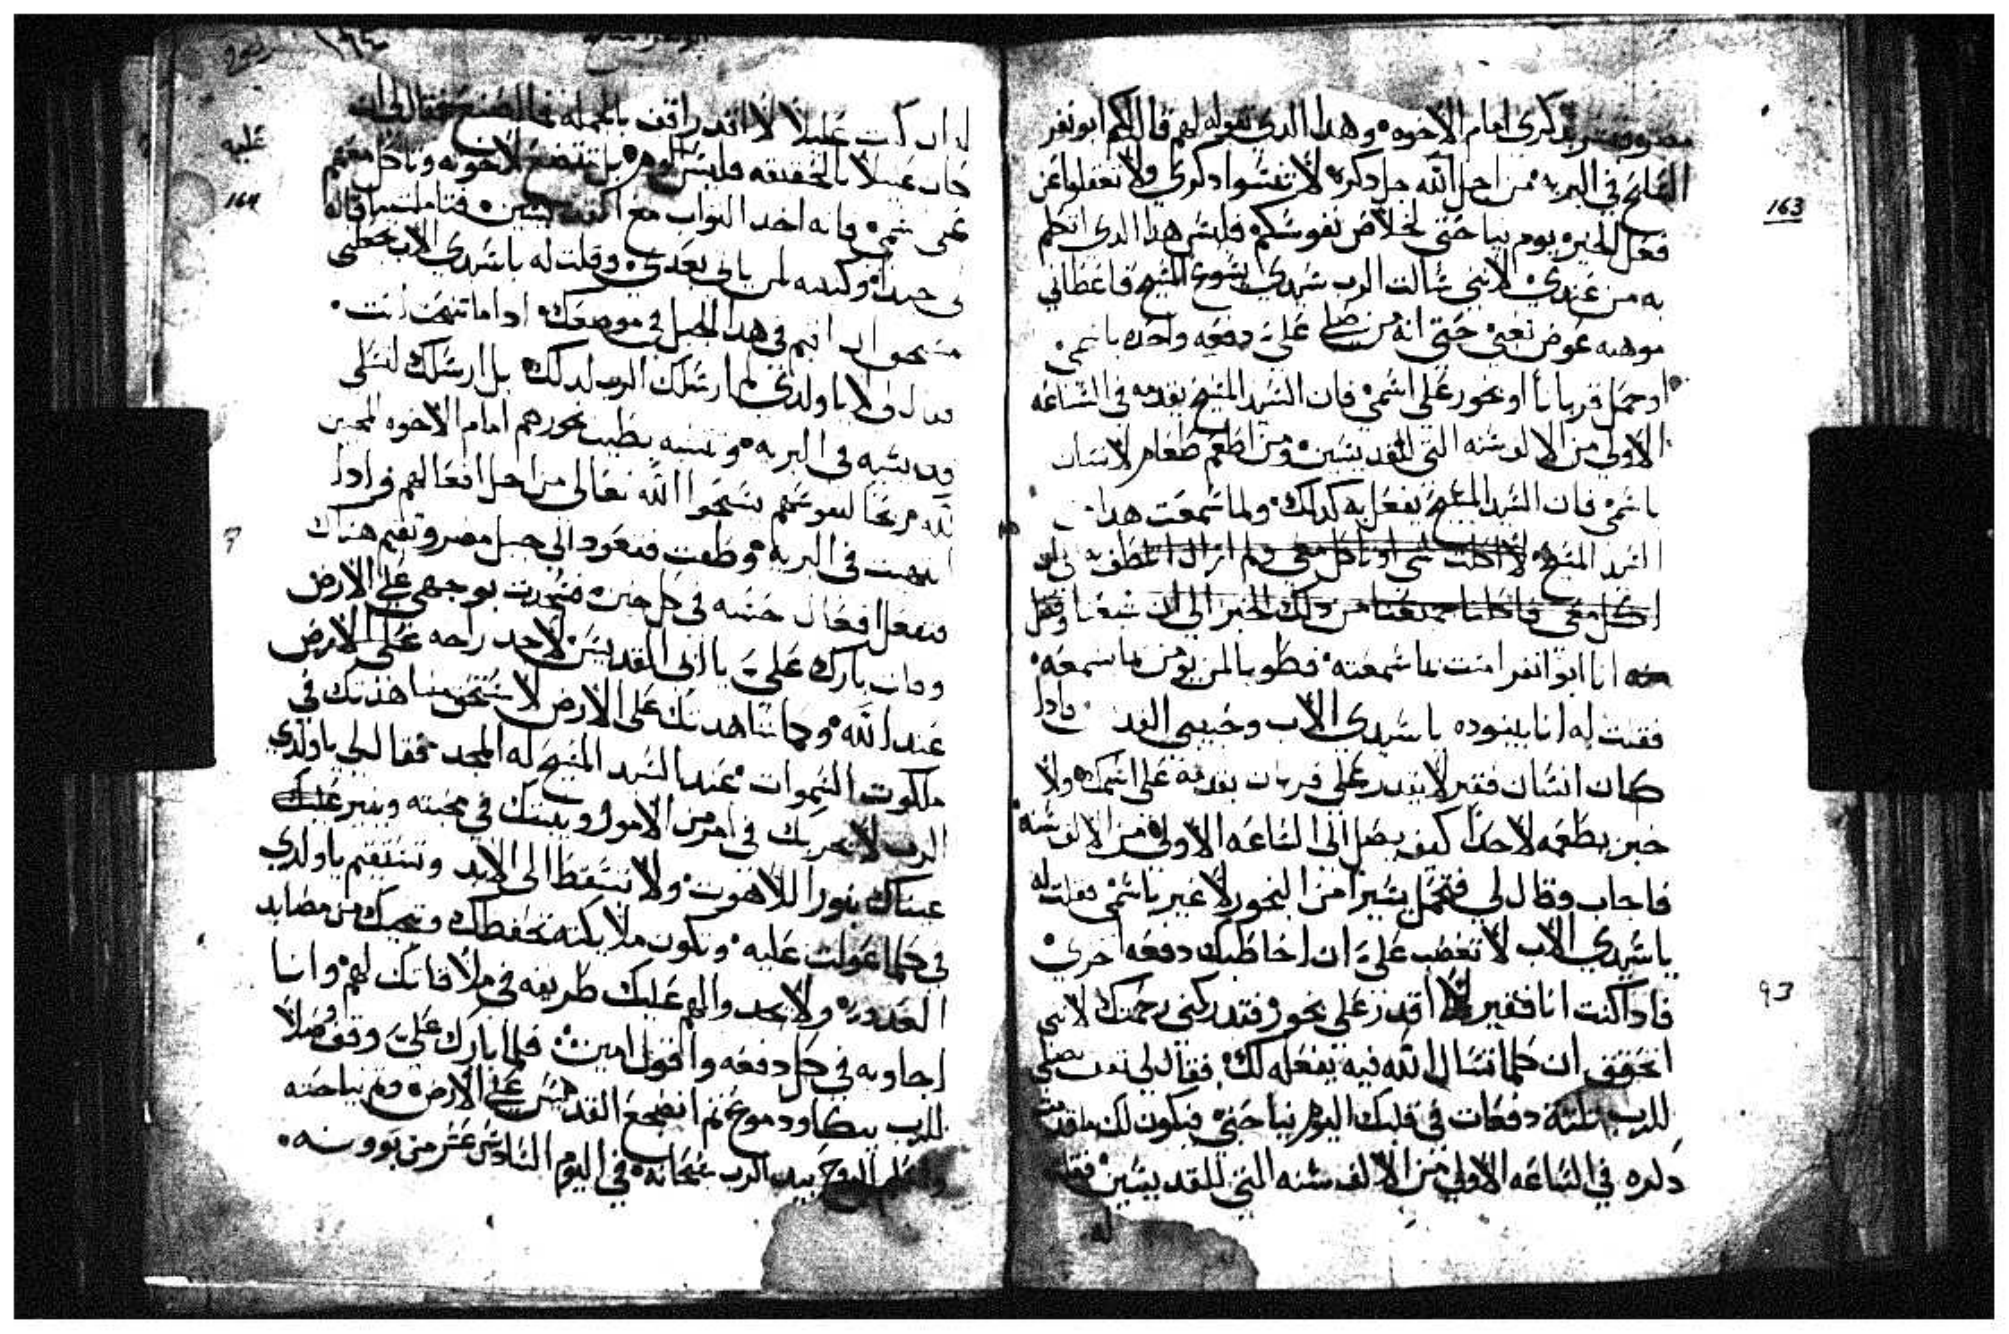 163
مصر وتتذكري امام الاخوه وهدا الدي تقوله لهم قال لكم ابو نفر
السايح في البريه من اجل الله جل دكره لا تنسوا دكري ولا تغفلوا عن
فعل الخير يوم نياحتي لخلاص نفوسكم فليس هدا الدي اتكلم
به من عندي لانني سالت الرب سيدي يسوع المسيح فاعطاني
موهبه عوض تعبي حتي انه من صلي علي دفعه واحده باسمي
او حمل قربانا او بخور علي اسمي فان السيد المسيح يقدمه في الساعه
الاولي من الالف سنه التي للقديسين ومن اطعم طعام لانسان
باسمي فان السيد المسيح يفعل به كدلك ولما سمعت هدا من
السيد المسيح لا اكلت شي او تاكل معي ولم ازل اتلطف به الي ان
اكل معي فاكلنا جميعنا من دلك الخبز الي ان شبعنا وفضل
منه انا ابو نفر امنت بما سمعته فطوبا لمن يومن بما سمعه
فقلت له انا ببنوده يا سيدي الاب وحبيبي القد فادا
كان انسان فقير لا يقدر علي قربان يقدمه علي اسمك ولا
خبز يطعمه لاحدا كيف يصل الي الساعه الاولي من الالف سنه
فاجاب وقال لي فتحمل يسيرا من البخور لا غير باسمي فقلت له
يا سيدي الاب لا تغضب علي ان اخاطبك دفعه اخري
فادا كنت انا فقير لا اقدر علي بخور فتدركني رحمتك لانني
اتحقق ان كلما تسال الله فيه يفعله لك فقال لي تصلي
للرب تلتة دفعات في قلبك اليوم نياحتي فيكون لك ما
دكره في الساعه الاولي من الالف سنه التي للقديسين فقلت
له
93
164
عليه
له ان كنت عليلا لا اقدر اقف بالجمله فما اصنع فقال لي ان
كان عليلا بالحقيقه فليس الوهم بل تتضع لاخوته وتاكل معهم
علي اسمي فانه اخد التواب مع القديسين فتاملت ما قاله
لي جيدا وكتبته لمن ياتي بعدي وقلت له يا سيدي الاب تجعلني
مستحق ان اقيم في هدا الجبل في موضعك ادا ما تنيحت انت
فقال لي لا يا ولدي لم ارسلك الرب لدلك بل ارسلك لتسلي
قديسيه في البريه وتنبيه بطيب بخورهم امام الاخوه المحبين
لله مربحا لنفوسهم يسبحوا الله تعالي من اجل افعالهم فادا
انتهيت في البريه وطفت فتعود الي جبل مصر وتقيم هناك
فتفعل افعال حسنه في كل حين فسجدت بوجهي علي الارض
وقلت بارك علي يا ابي القديس لاجد راحه علي الارض
عند الله وكما شاهدتك علي الارض لاستحق مشاهدتك في
ملكوت السموات عند السيد المسيح له المجد فقال لي يا ولدي
الرب لا يجربك في امر من الامور ويتبتك في محبته وينير عليك
عيناك بنور اللاهوت ولا تسقط الي الابد وتستقيم يا ولدي
في كلما عولت عليه وتكون ملايكته تحفظك وتنجيك من مصايد
العدو ولا يجدوا لهم عليك طريقه في ملاقاتك لهم وانا
اجاوبه في كل دفعه واقول امين فلما بارك علي وقف مصلا
للرب ببكا ودموع ثم انضجع القديس علي الارض وتم نياحته
واسلم الروح بيد الرب سبحانه في اليوم السادس عشر من بوونه